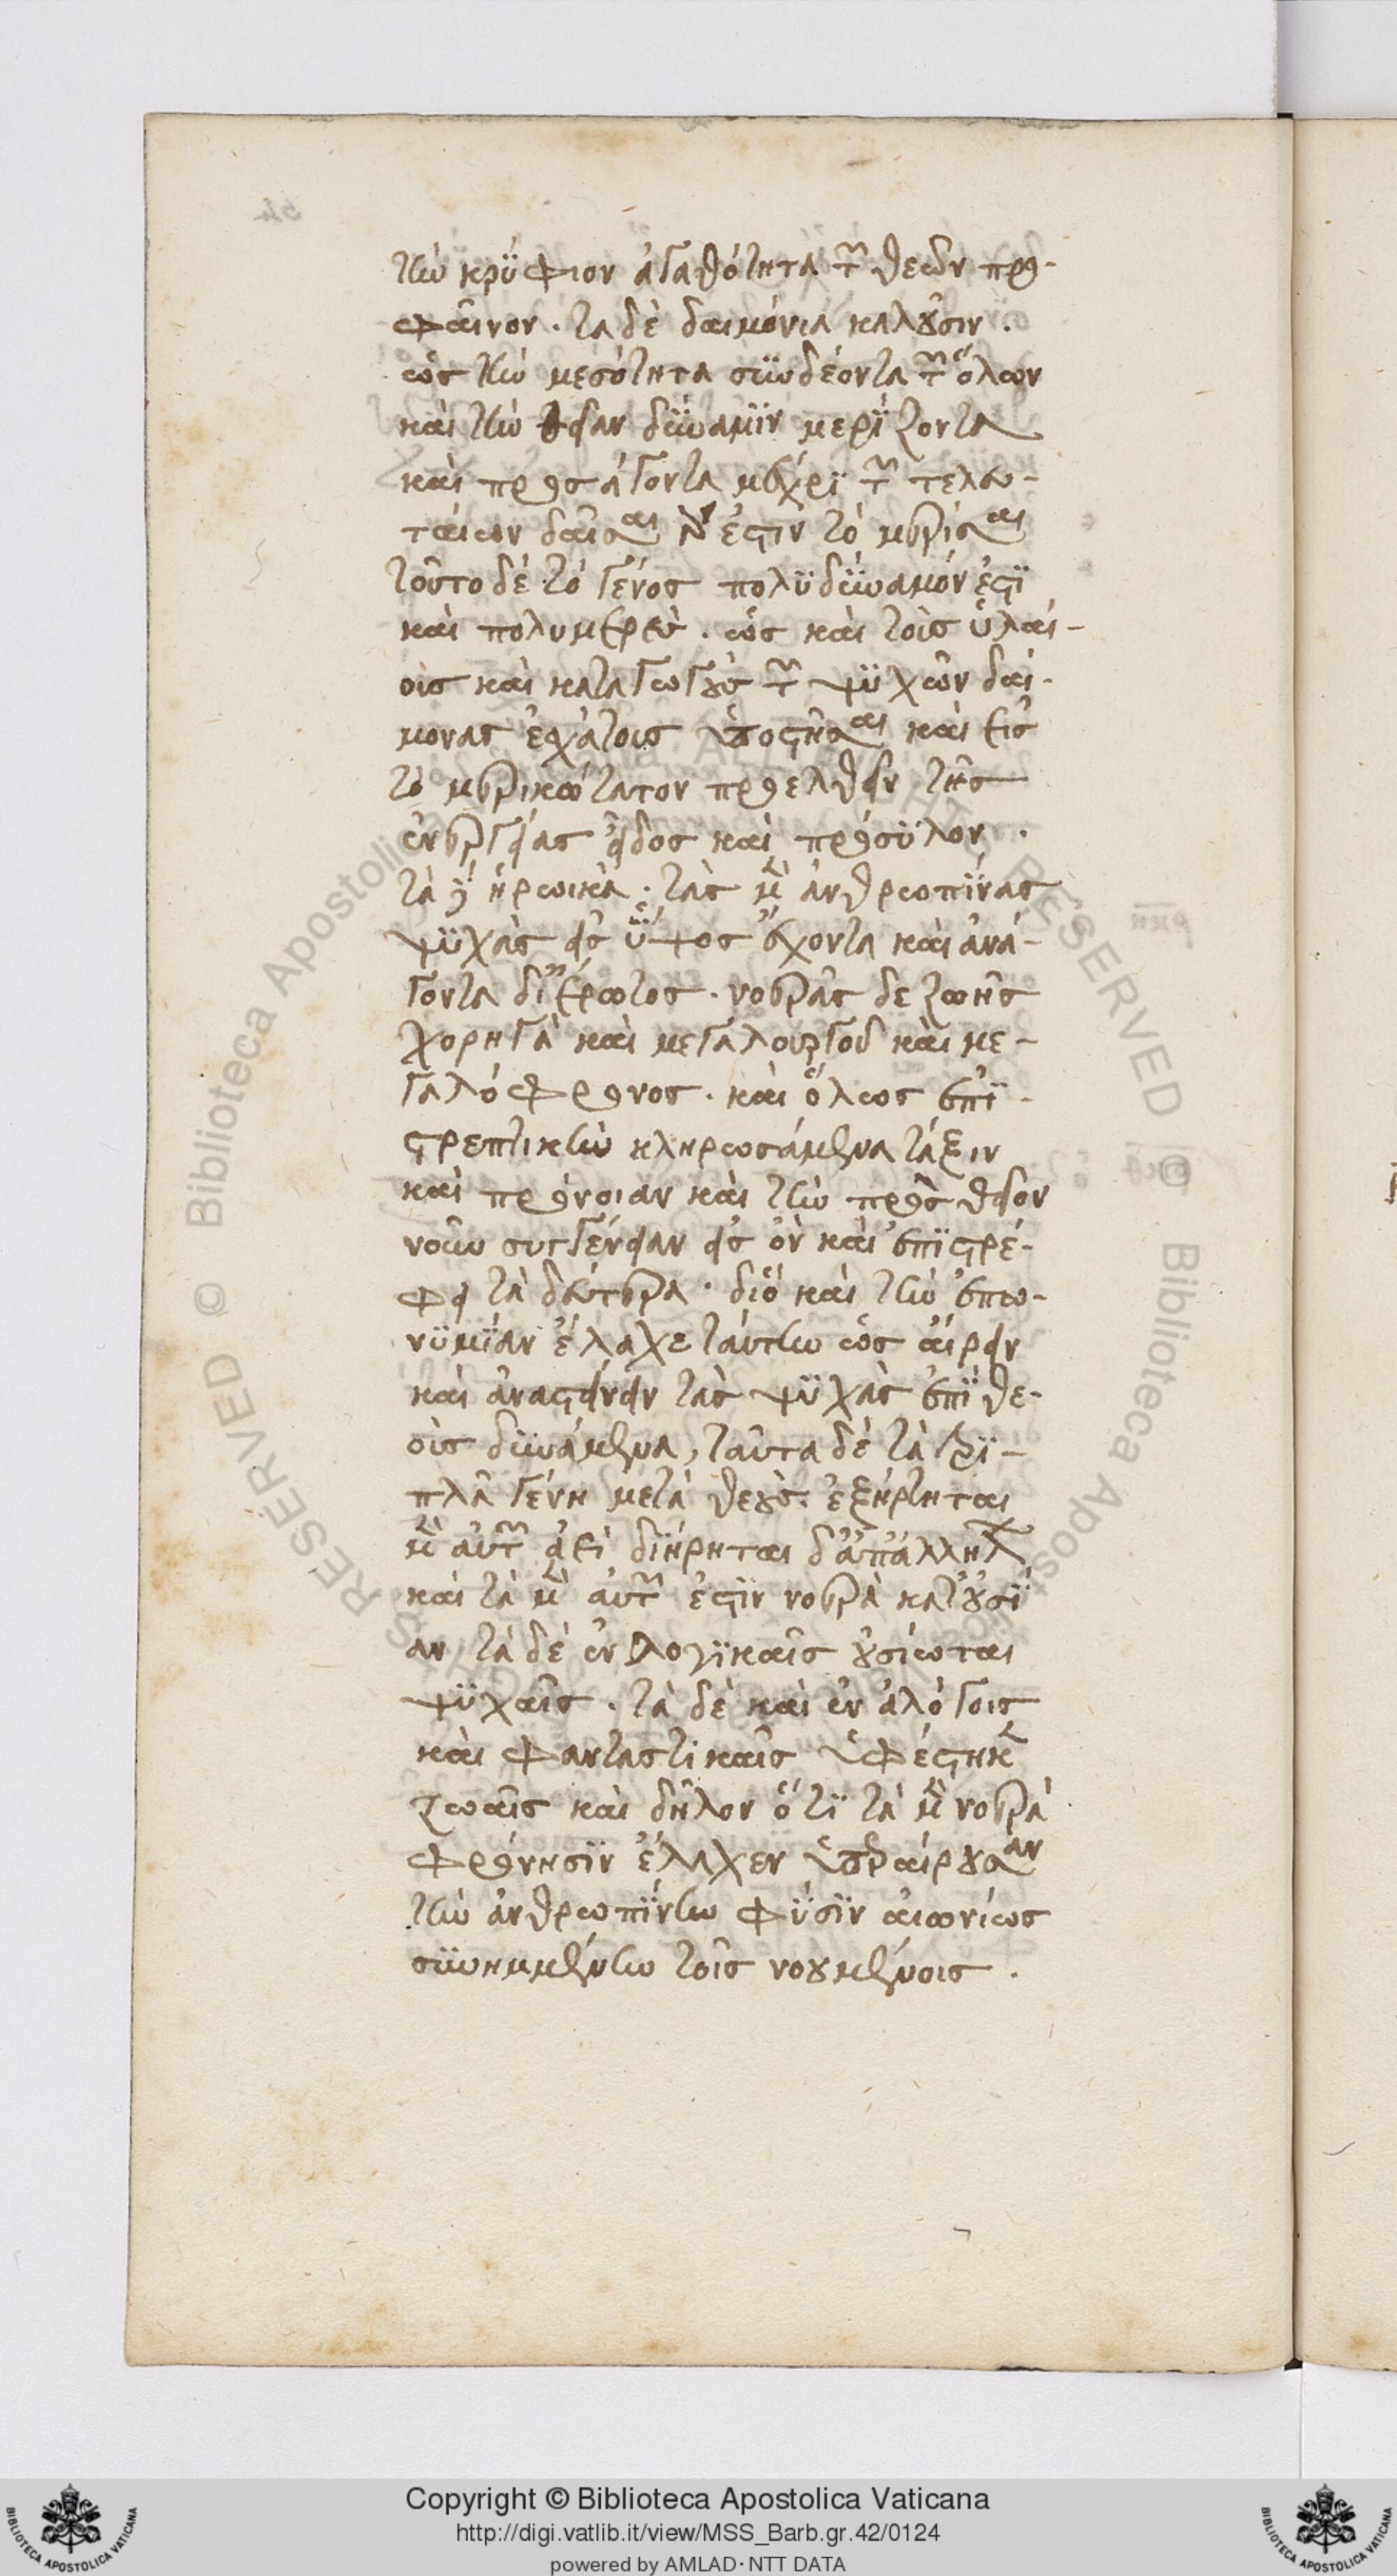 τὴν κρύφιον ἀγαθότητα τῶν θεῶν προ-
φαῖνον. τὰ δὲ δαιμόνια καλοῦσιν.
ὡς τὴν μεσότητα συνδέοντα τῶν ὅλων
καὶ τὴν θείαν δύναμιν μερίζοντα
καὶ προσάγοντα μέχρι τῶν τελευ-
ταίων δαῖσαι γάρ ἐστιν τὸ μερίσαι
τοῦτο δὲ τὸ γένος πολυδύναμόν ἐστι
καὶ πολυμερὲς. ὡς καὶ τοὺς ὑλαί-
οις καὶ καταγωγοὺς τῶν ψυχῶν δαί-
μονας ἐσχάτοις ὑποστῆσαι καὶ εἰς
τὸ μερικώτατον προελθεῖν τῆς
ἐνεργείας εἶδος καὶ πρόσυλον.
τὰ γ ἡρωικὰ. τὰς μὲν ἀνθρωπίνας
ψυχὰς εἰς ὕψος ἔχοντα καὶ ἀνά-
γοντα δι' ἔρωτος. νοερᾶς δε ζωῆς
χορηγὰ καὶ μεγαλουργοῦ καὶ με-
γαλόφρονος. καὶ ὅλως ἐπι-
στρεπτικὴν κληρωσάμενα τάξιν
καὶ πρόνοιαν καὶ τὴν πρὸς θεῖον
νοῦν συγγένειαν εἰς ὃν καὶ ἐπιστρέ-
φει τὰ δεύτερα. διὸ καὶ τὴν ἐπω-
νυμίαν ἔλαχε ταύτην ὡς αἴρειν
καὶ ἀναστείνειν τὰς ψυχὰς ἐπὶ θε-
οὺς δυνάμενα, ταῦτα δὲ τὰ τρι-
πλᾶ γένη μετὰ θεοὺς. ἐξήρτηται
μὲν αὐτῶν ἀεὶ διήρηται δ' ἀπ' ἀλλήλων
καὶ τὰ μὲν αὐτῶν ἐστιν νοερὰ κατ' οὐσί
αν τὰ δὲ ἐν λογικαῖς οὐσίωται
ψυχαῖς. τὰ δὲ καὶ ἐν ἀλόγοις
καὶ φανταστικαῖς ὑφέστηκε
ζωαῖς καὶ δῆλον ὅτι τὰ μὲν νοερὰ
φρόνησιν ἔλαχεν ὑπεραίρουσαν
τὴν ἀνθρωπίνην φύσιν αἰωνίως
συνημμένην τοῖς νοουμένοις.
Copyright © Biblioteca Apostolica Vaticana
http://digi.vatlib.it/view/MSS_Barb.gr.42/0124
powered by AMLAD · NTT DATA